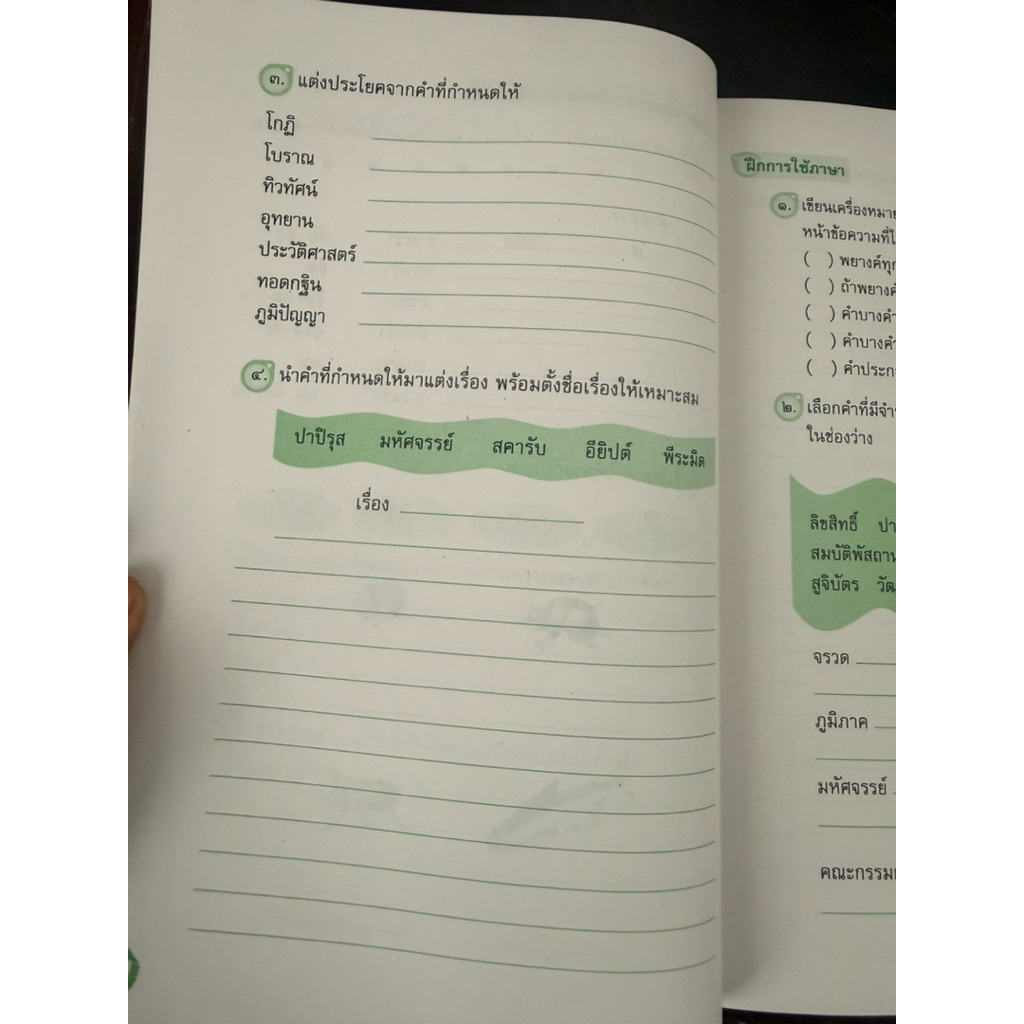 ๓. แต่งประโยคจากคำที่กำหนดให้
โกฏิ
โบราณ
ทิวทัศน์
อุทยาน
ประวัติศาสตร์
ทอดกฐิน
ภูมิปัญญา
๔. นำคำที่กำหนดให้มาแต่งเรื่อง พร้อมตั้งชื่อเรื่องให้เหมาะสม
ปาปิรุส มหัศจรรย์ สคารับ อียิปต์ พีระมิด
เรื่อง
ฝึกการใช้ภาษา
๑. เขียนเครื่องหมาย
หน้าข้อความที่
( ) พยางค์ทุก
( ) ถ้าพยางค์
( ) คำบางคำ
( ) คำบางคำ
( ) คำประก
๒. เลือกคำที่มีจำ
ในช่องว่าง
ลิขสิทธิ์ ปา
สมบัติพัสถาน
สูจิบัตร วัฒ
จรวด
ภูมิภาค
มหัศจรรย์
คณะกรรม